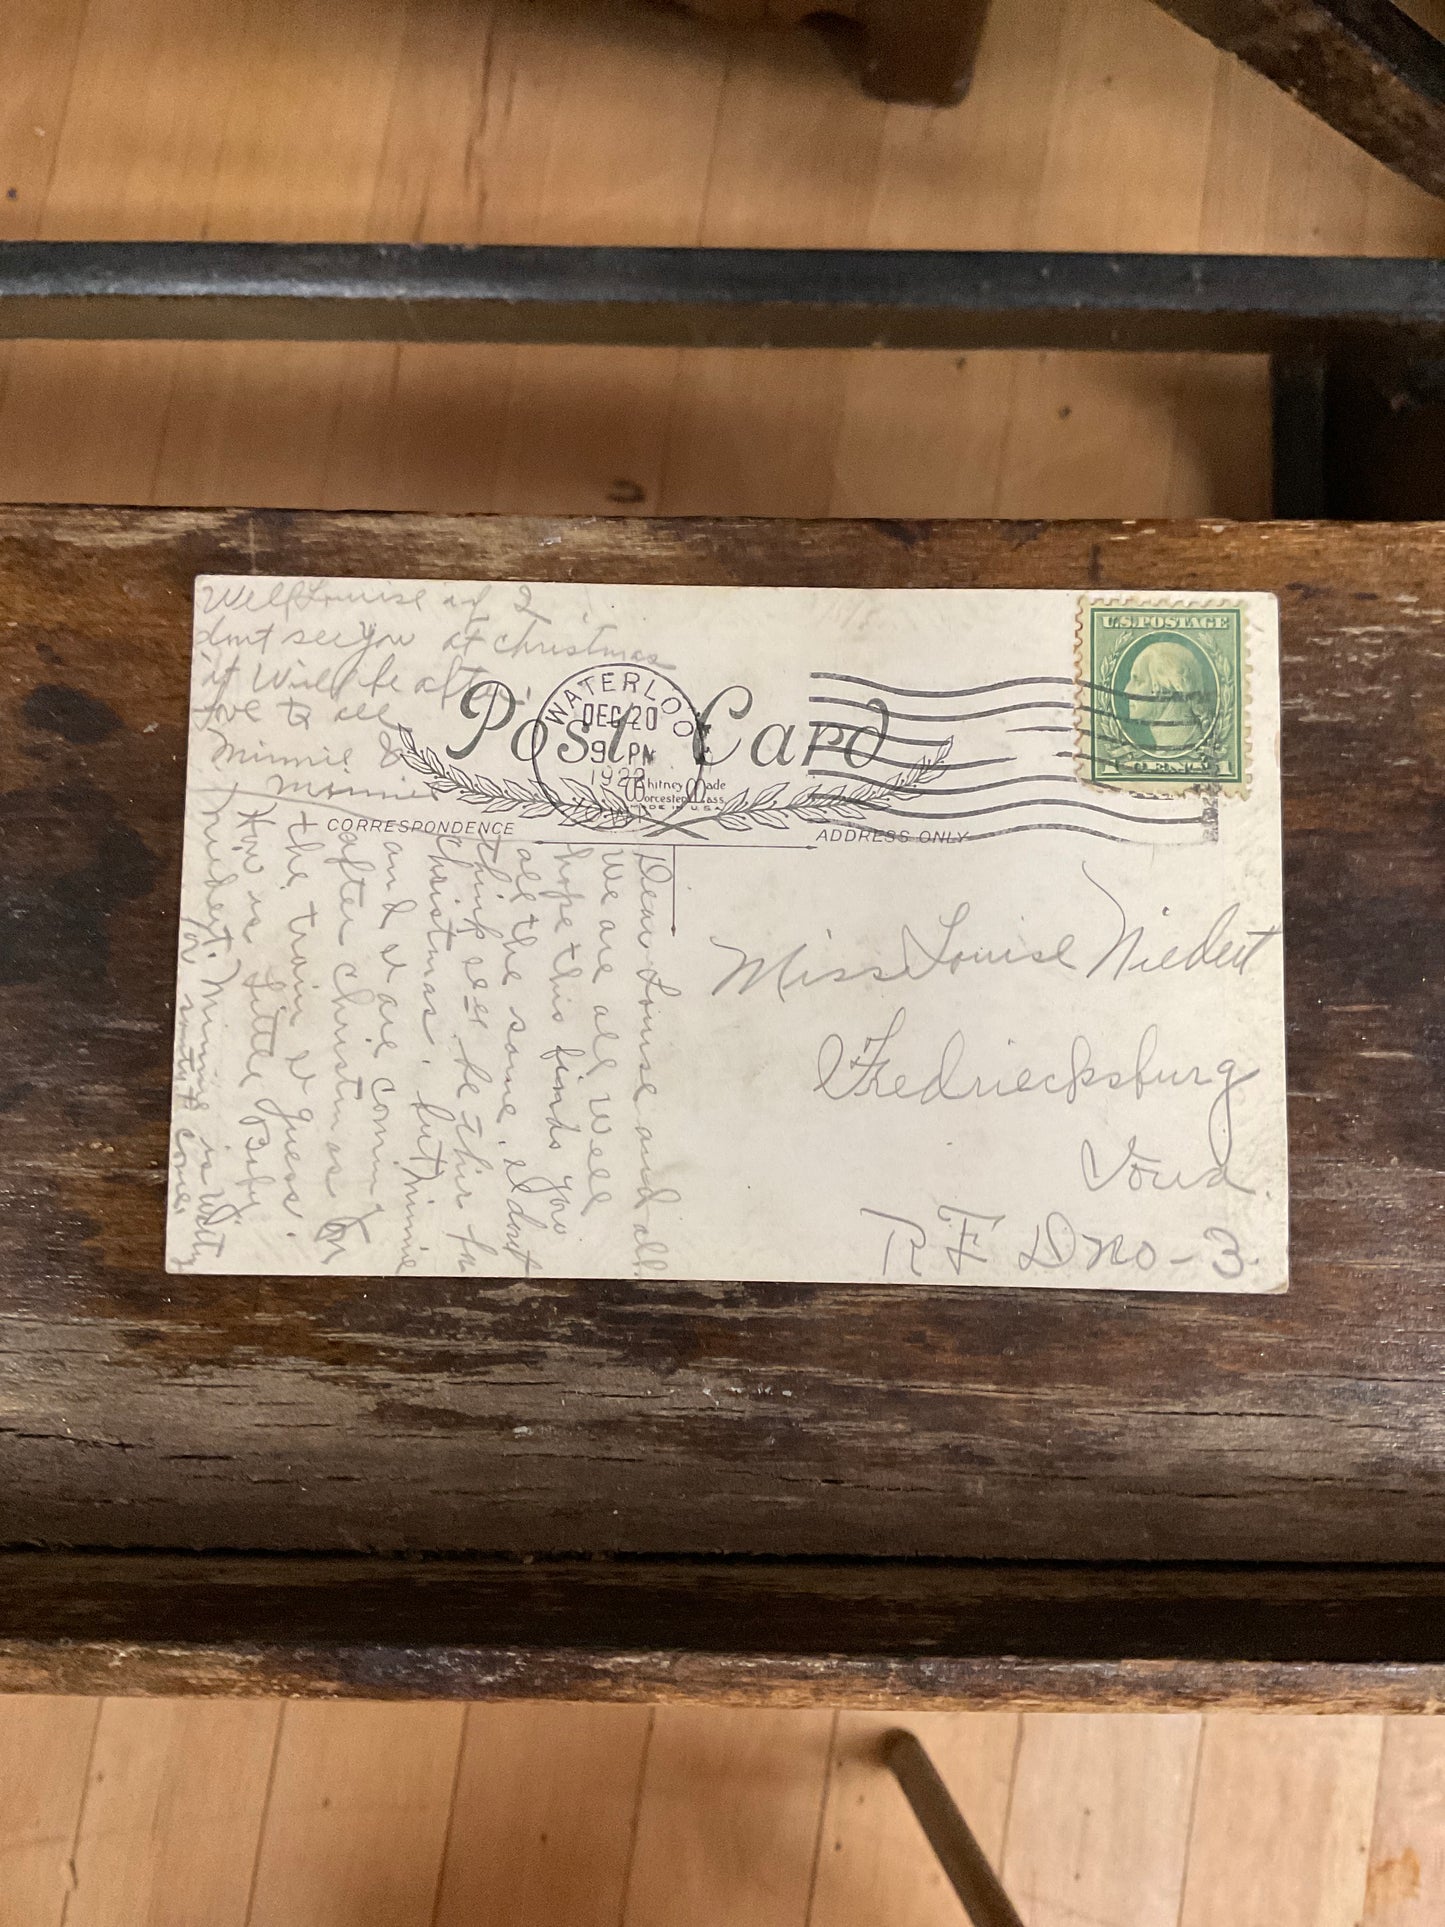 Well Louise if I
dont see you at christmas
it Will be after
love to all
Minnie &
Minnie
Post Card
WATERLOO
DEC 20
9 PM
1922
IOWA
Whitney Made
Worcester Mass.
MADE IN U.S.A.
U.S. POSTAGE
1 CENT 1
CORRESPONDENCE
ADDRESS ONLY
Dear Louise and all.
We are all Well
hope this finds you
all the same. I dont
think Ill be there for
Christmas. but Minnie
and I are coming
after christmas on
the train I guess.
How is Little Baby
Minnie is
for to come
Miss Louise Niedert
Fredriecksburg
Iowa.
R F D no - 3.